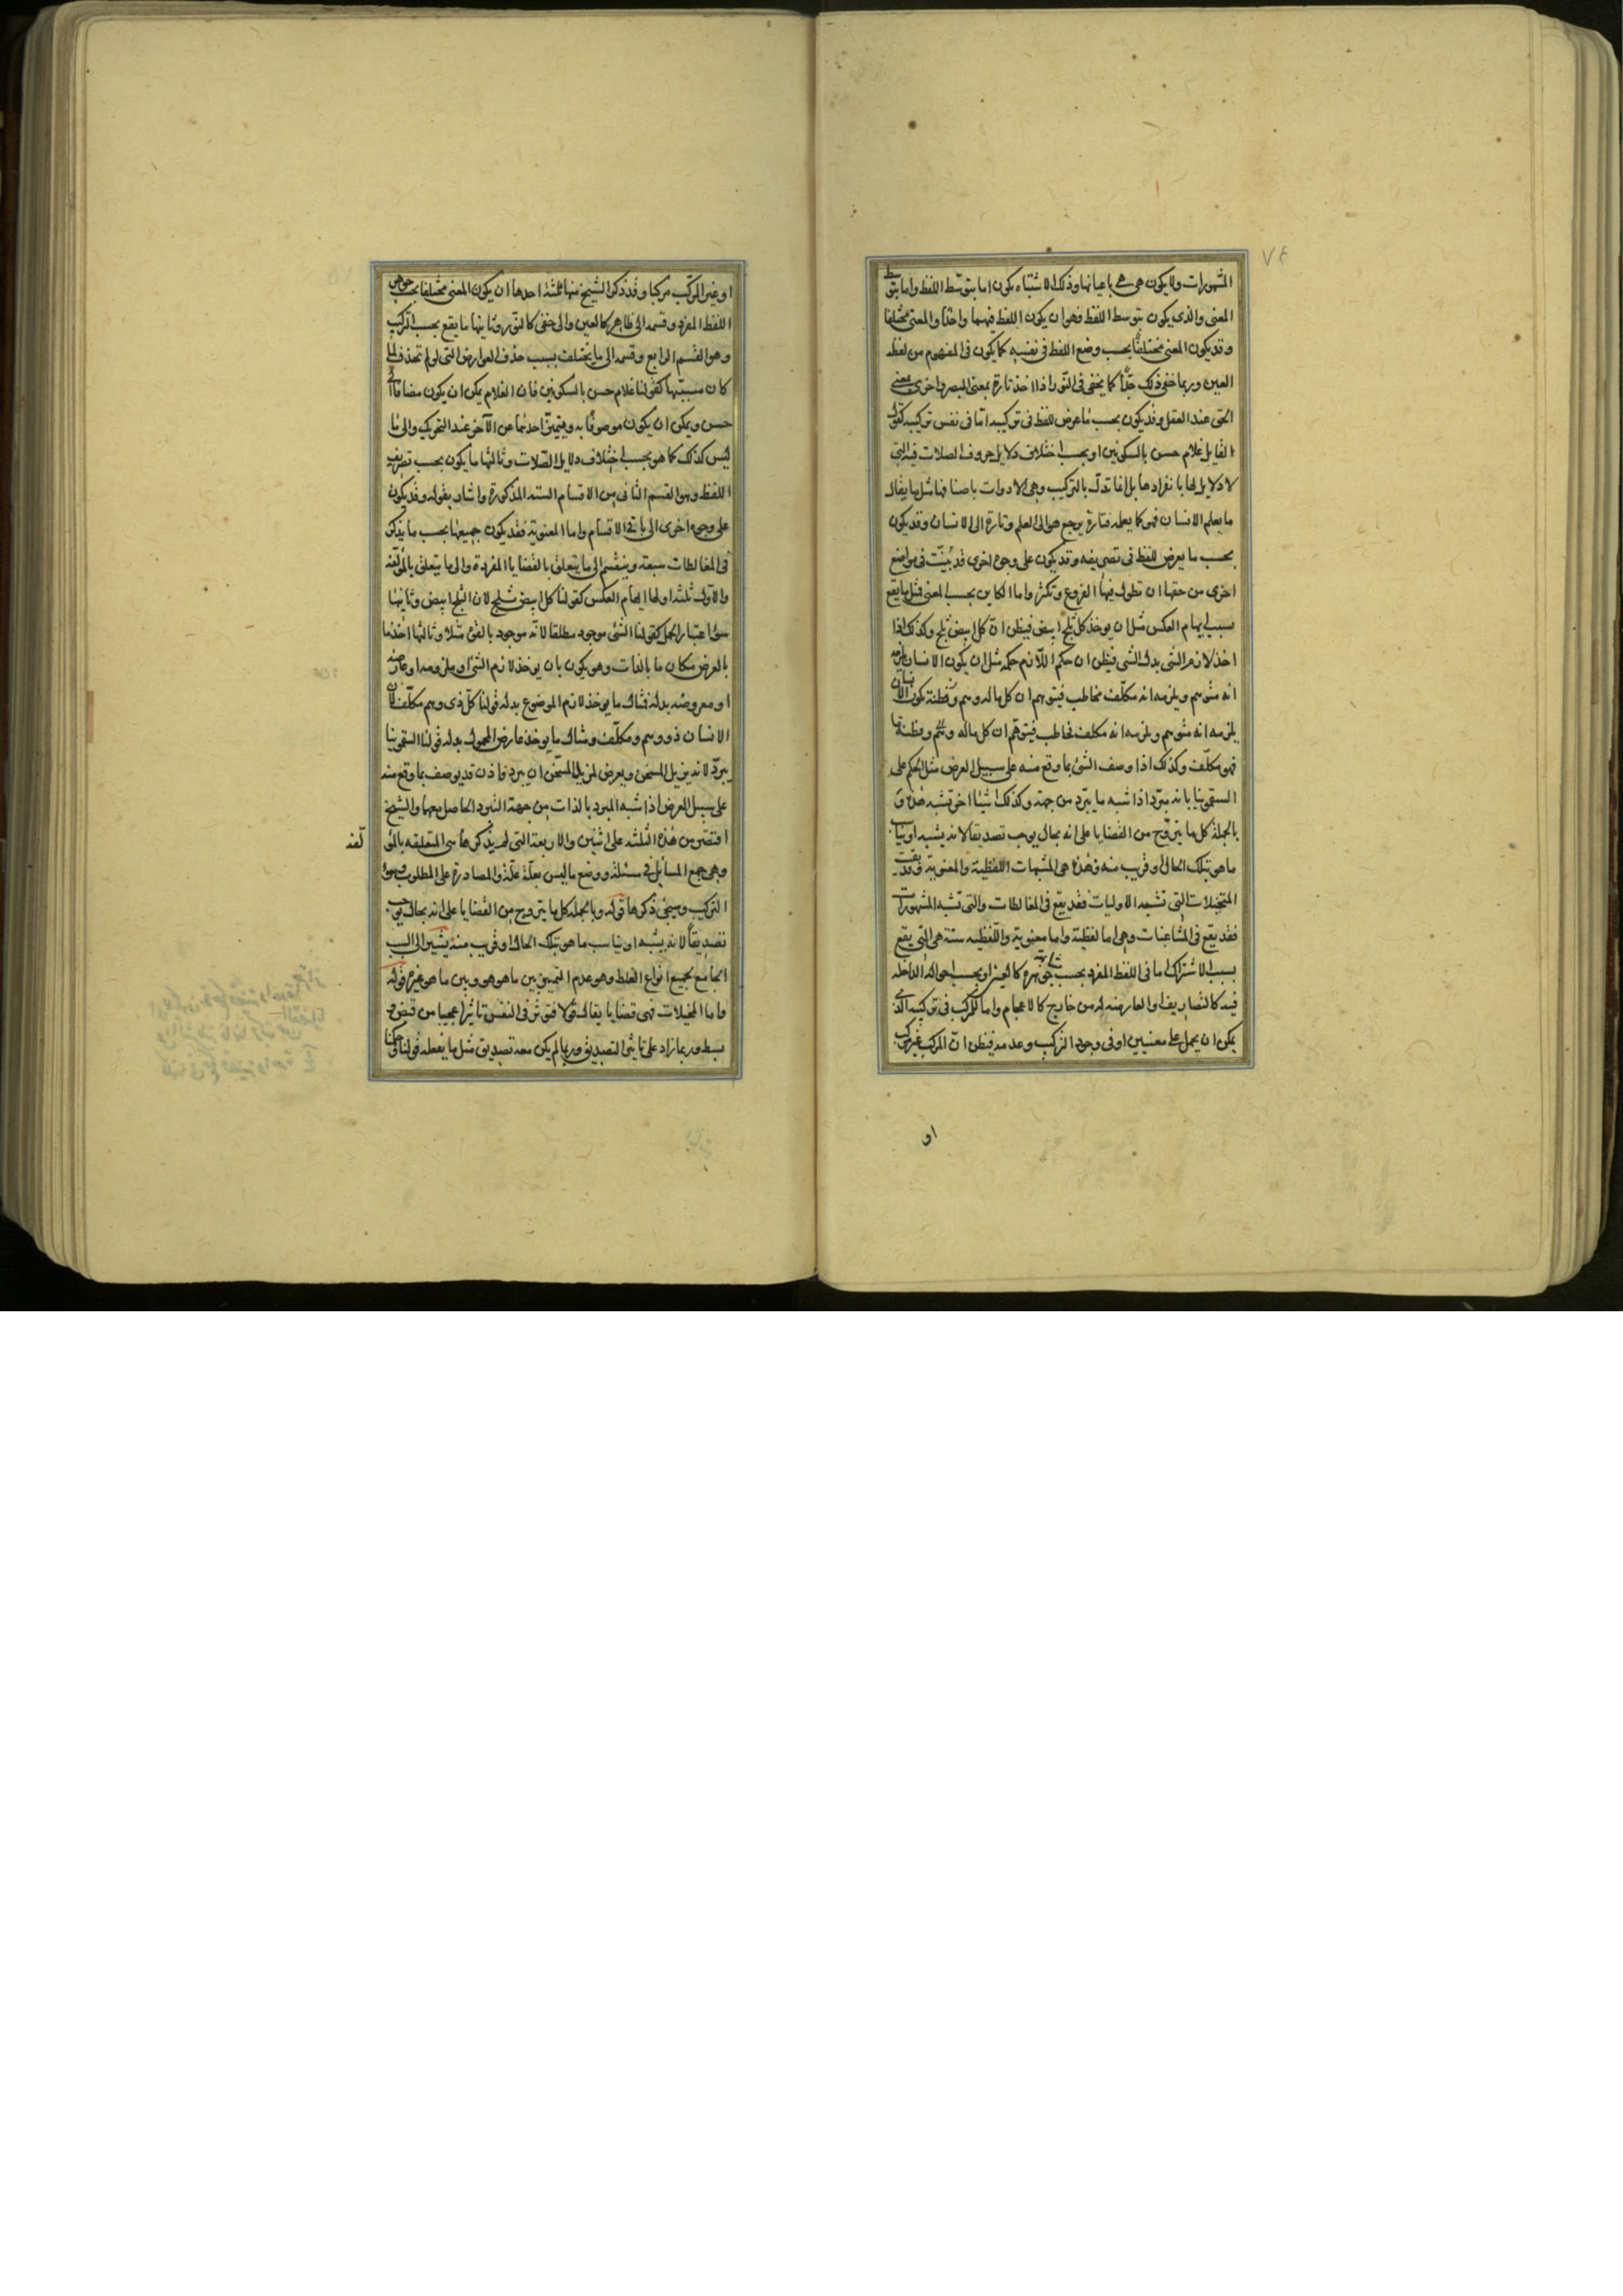 ٧٤
المشهورات ولا يكون هى هى باعيانها وذلك الاشتباه يكون اما بتوسّط اللفظ واما بتوسط
المعنى والذى يكون بتوسط اللفظ فهو ان يكون اللفظ فيهما واحدًا والمعنى مختلفا
وقد يكون المعنى مختلفًا بحسب وضع اللفظ فى نفسه كما يكون فى المفهوم من لفظه
العين وربما خفى ذلك جدًّا كما يخفى فى النّور اذا اخذ تارة بمعنى المبصر واخرى بمعنى
الحق عند العقل وقد يكون بحسب ما عرض للفظ فى تركيبه امّا فى نفس تركيبه كقول
القايل غلام حسن بالسكونين او بحسب اختلاف دلايل حروف الصلات فيه التى
لا دلايل لها بانفرادها بل انما تدلّ بالتركيب وهى الادوات باصنافها مثل ما يقال
ما يعلم الانسان فهو كما يعلمه فتارة يرجع هو الى العلم وتارة الى الانسان وقد يكون
بحسب ما يعرض للفظ فى تصريفه وقد يكون على وجوه اخرى قد بُيّنت فى مواضع
اخرى من حقها ان تطول فيها الفروع وتكثر واما الكاين بحسب المعنى فمثل ما يقع
بسبب ايهام العكس مثل ان يوخذ كل ثلج ابيض فيظن ان كل ابيض ثلج وكذلك اذا
اخذ لازم الشى بدل الشى فيظن ان حكم اللازم حكمه مثل ان يكون الانسان يلزمه
انه متوهم ويلزمه انه مكلّف مخاطب فيتوهم ان كل ما له وهم وفطنة كون الانسان
يلزمه انه متوهم ويلزمه انه مكلف مخاطب فيتوهّم ان كل ماله وهم وفطنة ما
فهو مكلّف وكذلك اذا وصف الشئ بما وقع منه على سبيل العرض مثل الحكم على
السقمونيا بانه مبرّد اذا شبه ما يبرد من جهة وكذلك اشياء اخر تشبه هذه و
بالجلمة كل ما يتروّج من القضايا على انه بحال يوجب تصديقا لانه يشبه او يناسب
ما هو بتلك الحال او قريب منه فهذه هى المشبهات اللفظية والمعنوية وقد بقيت
المتخيلات التى تشبه الاوليات فقد يقع فى المغالطات والتى تشبه المشهورات
فقد يقع فى المشاغبات وهى اما لفظية واما معنوية واللفظيه ستة هى التى يقع
بسبب الاشتراك اما فى اللفظ المفرد بحسب جوهره كالعين او بحسب احواله الداخله
فيه كالتصاريف او العارضه له من خارج كالاعجام واما المركب فى تركيبه الذى
يمكن ان يحمل على معنيين او فى وجود التركيب وعدمه فيظن ان المركب غير مركب
او
او غير المركّب مركبا وقد ذكر الشيخ منها ثلثة احدها ان يكون المعنى مختلفا بحسب جوهر
اللفظ المفرد وقسمه الى ظاهر كالعين والى خفى كالنور وثانيها ما يقع بحسب التركيب
وهو القسم الرابع وقسمه الى ما يختلف بسبب حذف العوارض التى لو لم تحذف لما
كان مشتبها كقولنا غلام حسن بالسكونين فان الغلام يمكن ان يكون مضافا الى
حسن ويمكن ان يكون موصوفًا به ويتميّز احدهما عن الآخر عند التحريك والى ما
ليس كذلك كما هو بحسب اختلاف دلايل الصّلات وثالثها ما يكون بحسب تصريف
اللفظ وهو القسم الثانى من الاقسام الستة المذكورة واشار بقوله وقد يكون
على وجوه اخرى الى باقى الاقسام واما المعنوية فقد يكون جميعها بحسب ما يذكر
فى المغالطات سبعة وينقسم الى ما يتعلق بالقضايا المفردة والى ما يتعلق بالمؤلّفة
والاول ثلثة اولها ايهام العكس كقولنا كل ابيض ثلج لان الثلج ابيض وثانيها
سوء اعتبار الحمل كقولنا الشئ موجود مطلقا لانّه موجود بالقوة مثلا وثالثها اخذ ما
بالعرض مكان ما بالذات وهو يكون بان يوخذ لازم الشئ او ملزومه او عارضه
او معروضه بدله فمثال ما يوخذ لازم الموضوع بدله قولنا كلّ ذى وهم مكلّف لان
الانسان ذو وهم ومكلّف ومثال ما يوخذ عارض المحمول بدله قولنا السقمونيا
يبرّد لانه يزيل المسخن ويعرض لمزيل المسخّن ان يبرد فاذن قد يوصف بما وقع منه
على سبيل العرض اذا شبه المبرد بالذات من جهة التبرد الحاصل معهما والشيخ
اقتصر من هذه الثلثه على اثنين والاربعة التى لم يذكرها هى المتعلقه بالمؤ
لّفه
وهى جمع المسائل فى مسئلة ووضع ما ليس بعلّة علّة والمصادرة على المطلوب وسوء
التركيب وسيجئ ذكرها قوله وبالجمله كل ما يتروج من القضايا على انه بحال يوجب
تصديقًا لانه يشبه او يناسب ما هو بتلك الحال او قريب منه يشير الى السبب
الجامع لجميع انواع الغلط وهو عدم التمييز بين ما هو هو وبين ما هو غيره قوله
واما المخيلات فهى قضايا يقال قولا فتوثر فى النفس تاثيرا عجيبا من قبض و
بسط وربما زاد على تاثير التصديق وربما لم يكن معه تصديق مثل ما يفعله قولنا وحكمنا